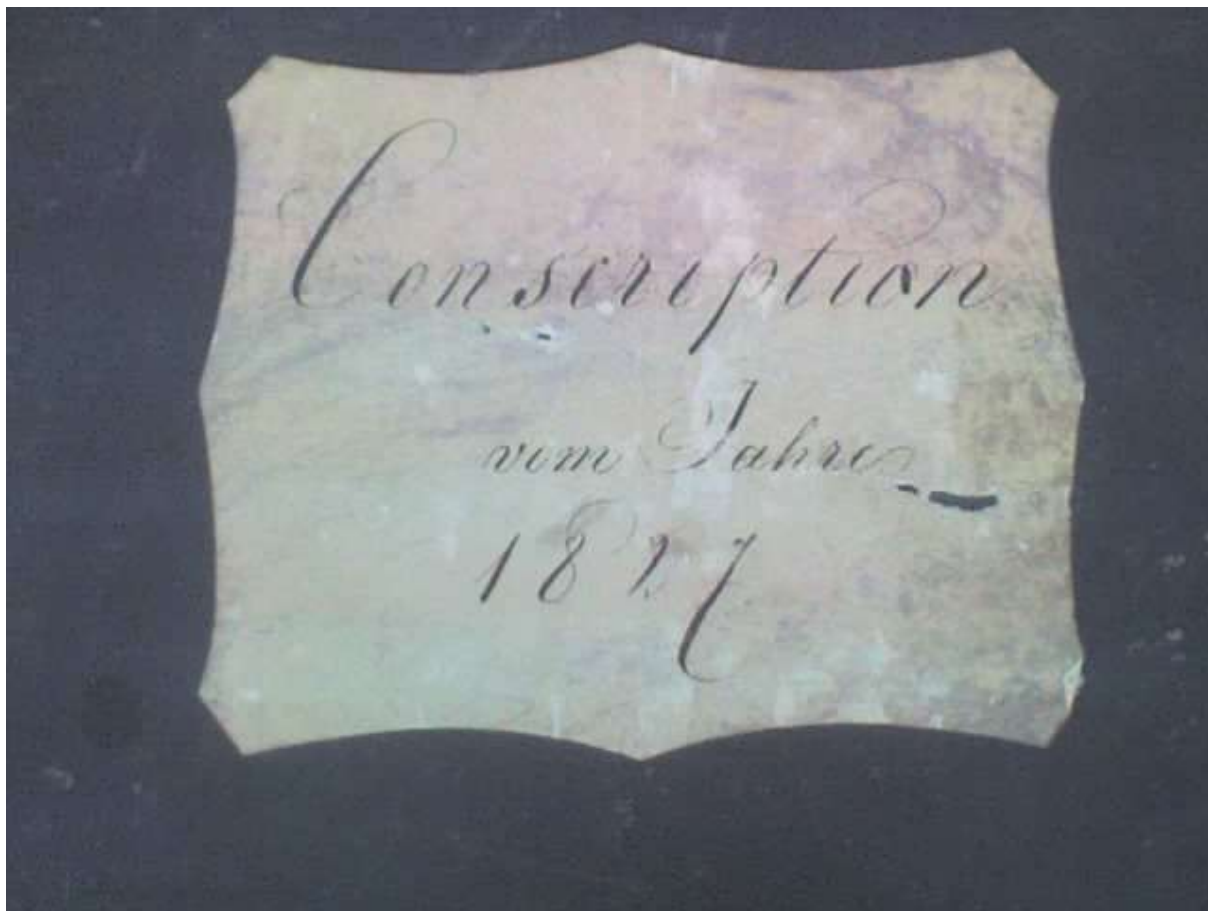 Conscription
vom Jahre
1827